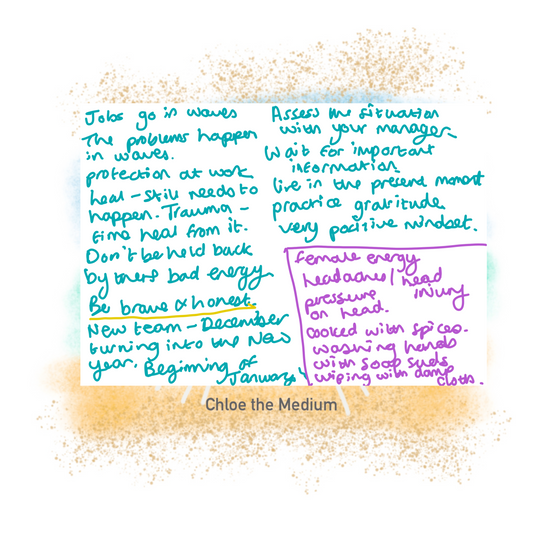 Jobs go in waves
The problems happen
in waves.
protection at work
heal - still needs to
happen. Trauma -
time heal from it.
Don't be held back
by others bad energy
Be brave & honest.
New team - December
turning into the New
year. Beginning of
January
Assess the situation
with your manager
Wait for important
information.
live in the present moment
practice gratitude
very positive mindset.
female energy
headaches / head
injury
pressure
on head.
cooked with spices.
washing hands
with soap suds
wiping with damp
cloths.
Chloe the Medium